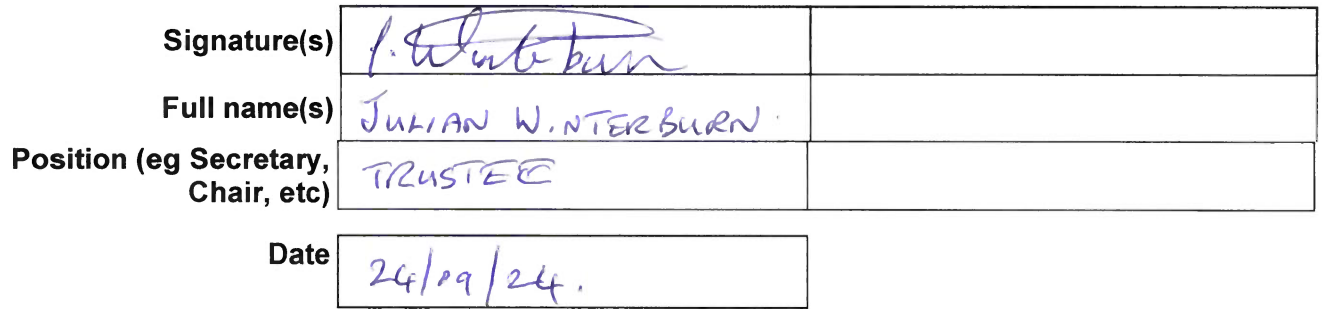 Signature(s) J. Winterburn
Full name(s) JULIAN WINTERBURN.
Position (eg Secretary,
Chair, etc) TRUSTEE
Date 24/09/24.